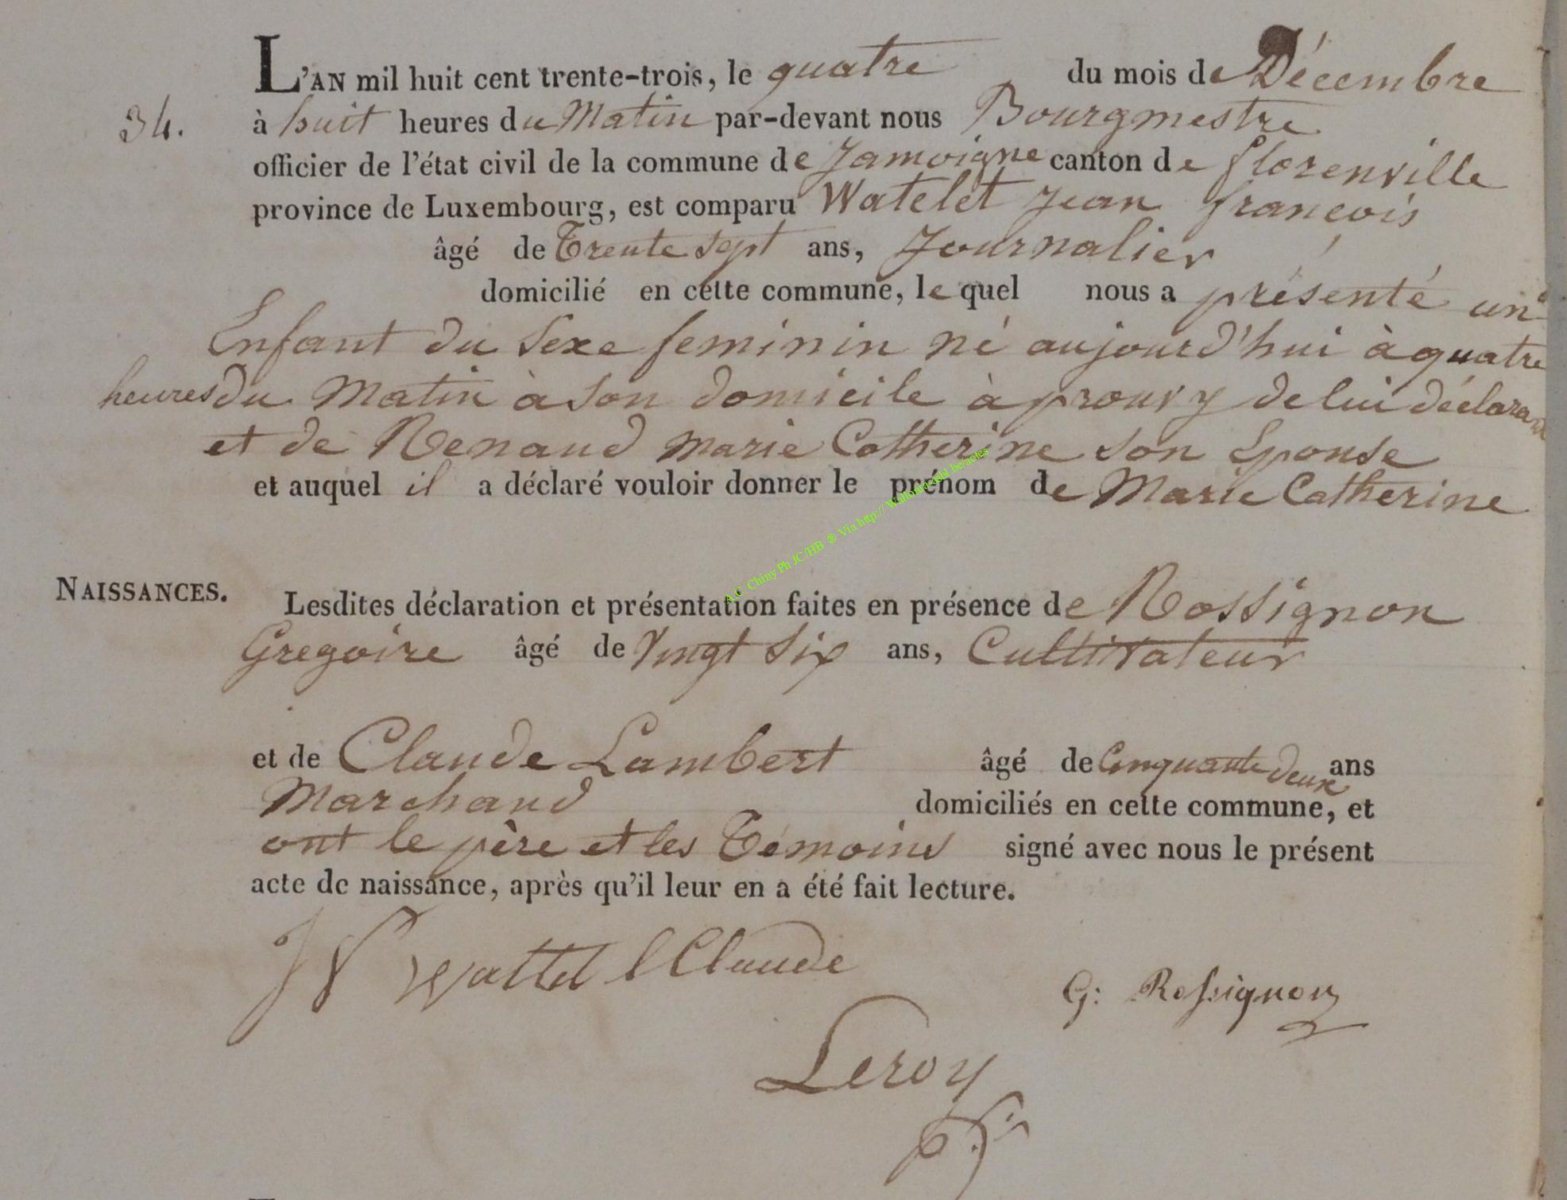 L'AN mil huit cent trente-trois, le quatre du mois de Décembre
34. à huit heures du Matin par-devant nous Bourgmestre
officier de l'état civil de la commune de Jamoigne canton de florenville
province de Luxembourg, est comparu Watelet Jean françois
âgé de Trente sept ans, Journalier
domicilié en cette commune, le quel nous a présenté un
Enfant du Sexe feminin né aujourd'hui à quatre
heures du Matin à son domicile à prouvy de lui déclarant
et de Renaud Marie Catherine son Epouse
et auquel il a déclaré vouloir donner le prénom de Marie Catherine
NAISSANCES. Lesdites déclaration et présentation faites en présence de Rossignon
Gregoire âgé de Vingt Six ans, Cultivateur
et de Claude Lambert âgé de Cinquante deux ans
Marchand domiciliés en cette commune, et
ont le père et les Témoins signé avec nous le présent
acte de naissance, après qu'il leur en a été fait lecture.
Wattel l Claude
G: Rossignon
Leroy